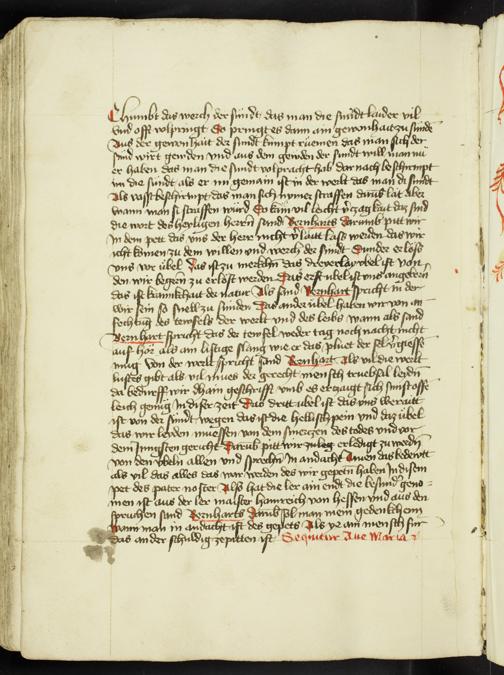 Chumbt das werch der sündt das man die sündt laider vil
vnd offt volpringt So pringt es dann ain gewonhait zu sünde
Aus der gewonhait der sündt kumpt rüemen das man sich der
sünd wirt
er haben das man die sündt volpracht hab dar nach beschirmpt
im die sündt als er nu gemain ist in der welt das man di sündt
Als vasst beschirmpt das man sich nymer straffen
wann man si straffen würd So kum vil leicht das sind
die wort des heyligen herrn sand Bernharts Darumb pitt wir
in dem pett das vns der herr nicht verlaitt lass werden das wir
icht komen zu dem willen vnd werch der sündt Sunder erlöss
vns vor übel Das ist zu merkchn das dreyerlay übel ist von
den wir begern zu erlöst werden Das erst übel ist vns angeborn
das ist krannkhait der natur Als sand Bernhart spricht in der
wir sein so snell zu sünden Das ander übel haben wir von an
fechtug des teufels der welt vnd des leibs wann als sand
Bernhart spricht das der teufel weder tag noch nacht nicht
auf hör als ain listige slang wie er das pluet der sel vergiess
mug Von der welt spricht sand Bernhart Als vil die welt
lustes gibt als vil mues der gerecht mensch truebsal leiden
da bedurff wir dhain geschrifft vmb es erzaigt sich sunst offt
leich genug in diser zeit Das dritt übel ist das vns berautt
ist von der sündt wegen das ist die hellisch pein vnd das übel
das wir leyden müessen von dem smerczen des todes vnd vor
dem jungsten gericht Darub pitt wir erledigt zu werdn
von den übeln allen vnd sprechen in andacht Amen das bedeutt
als vil das alles das war werde des wir gepetn haben in disem
pet des pater noster Als hat die ler ain end die besunder geno
men ist aus der ler maister hainreich von hessen vnd aus den
sprüchen sand Bernharts Darub sol man mein gedenkchen
wann man in andacht ist des gepets Als yr ain mensch für
das ander schuldig ze pitten ist Sequitur Aue Maria